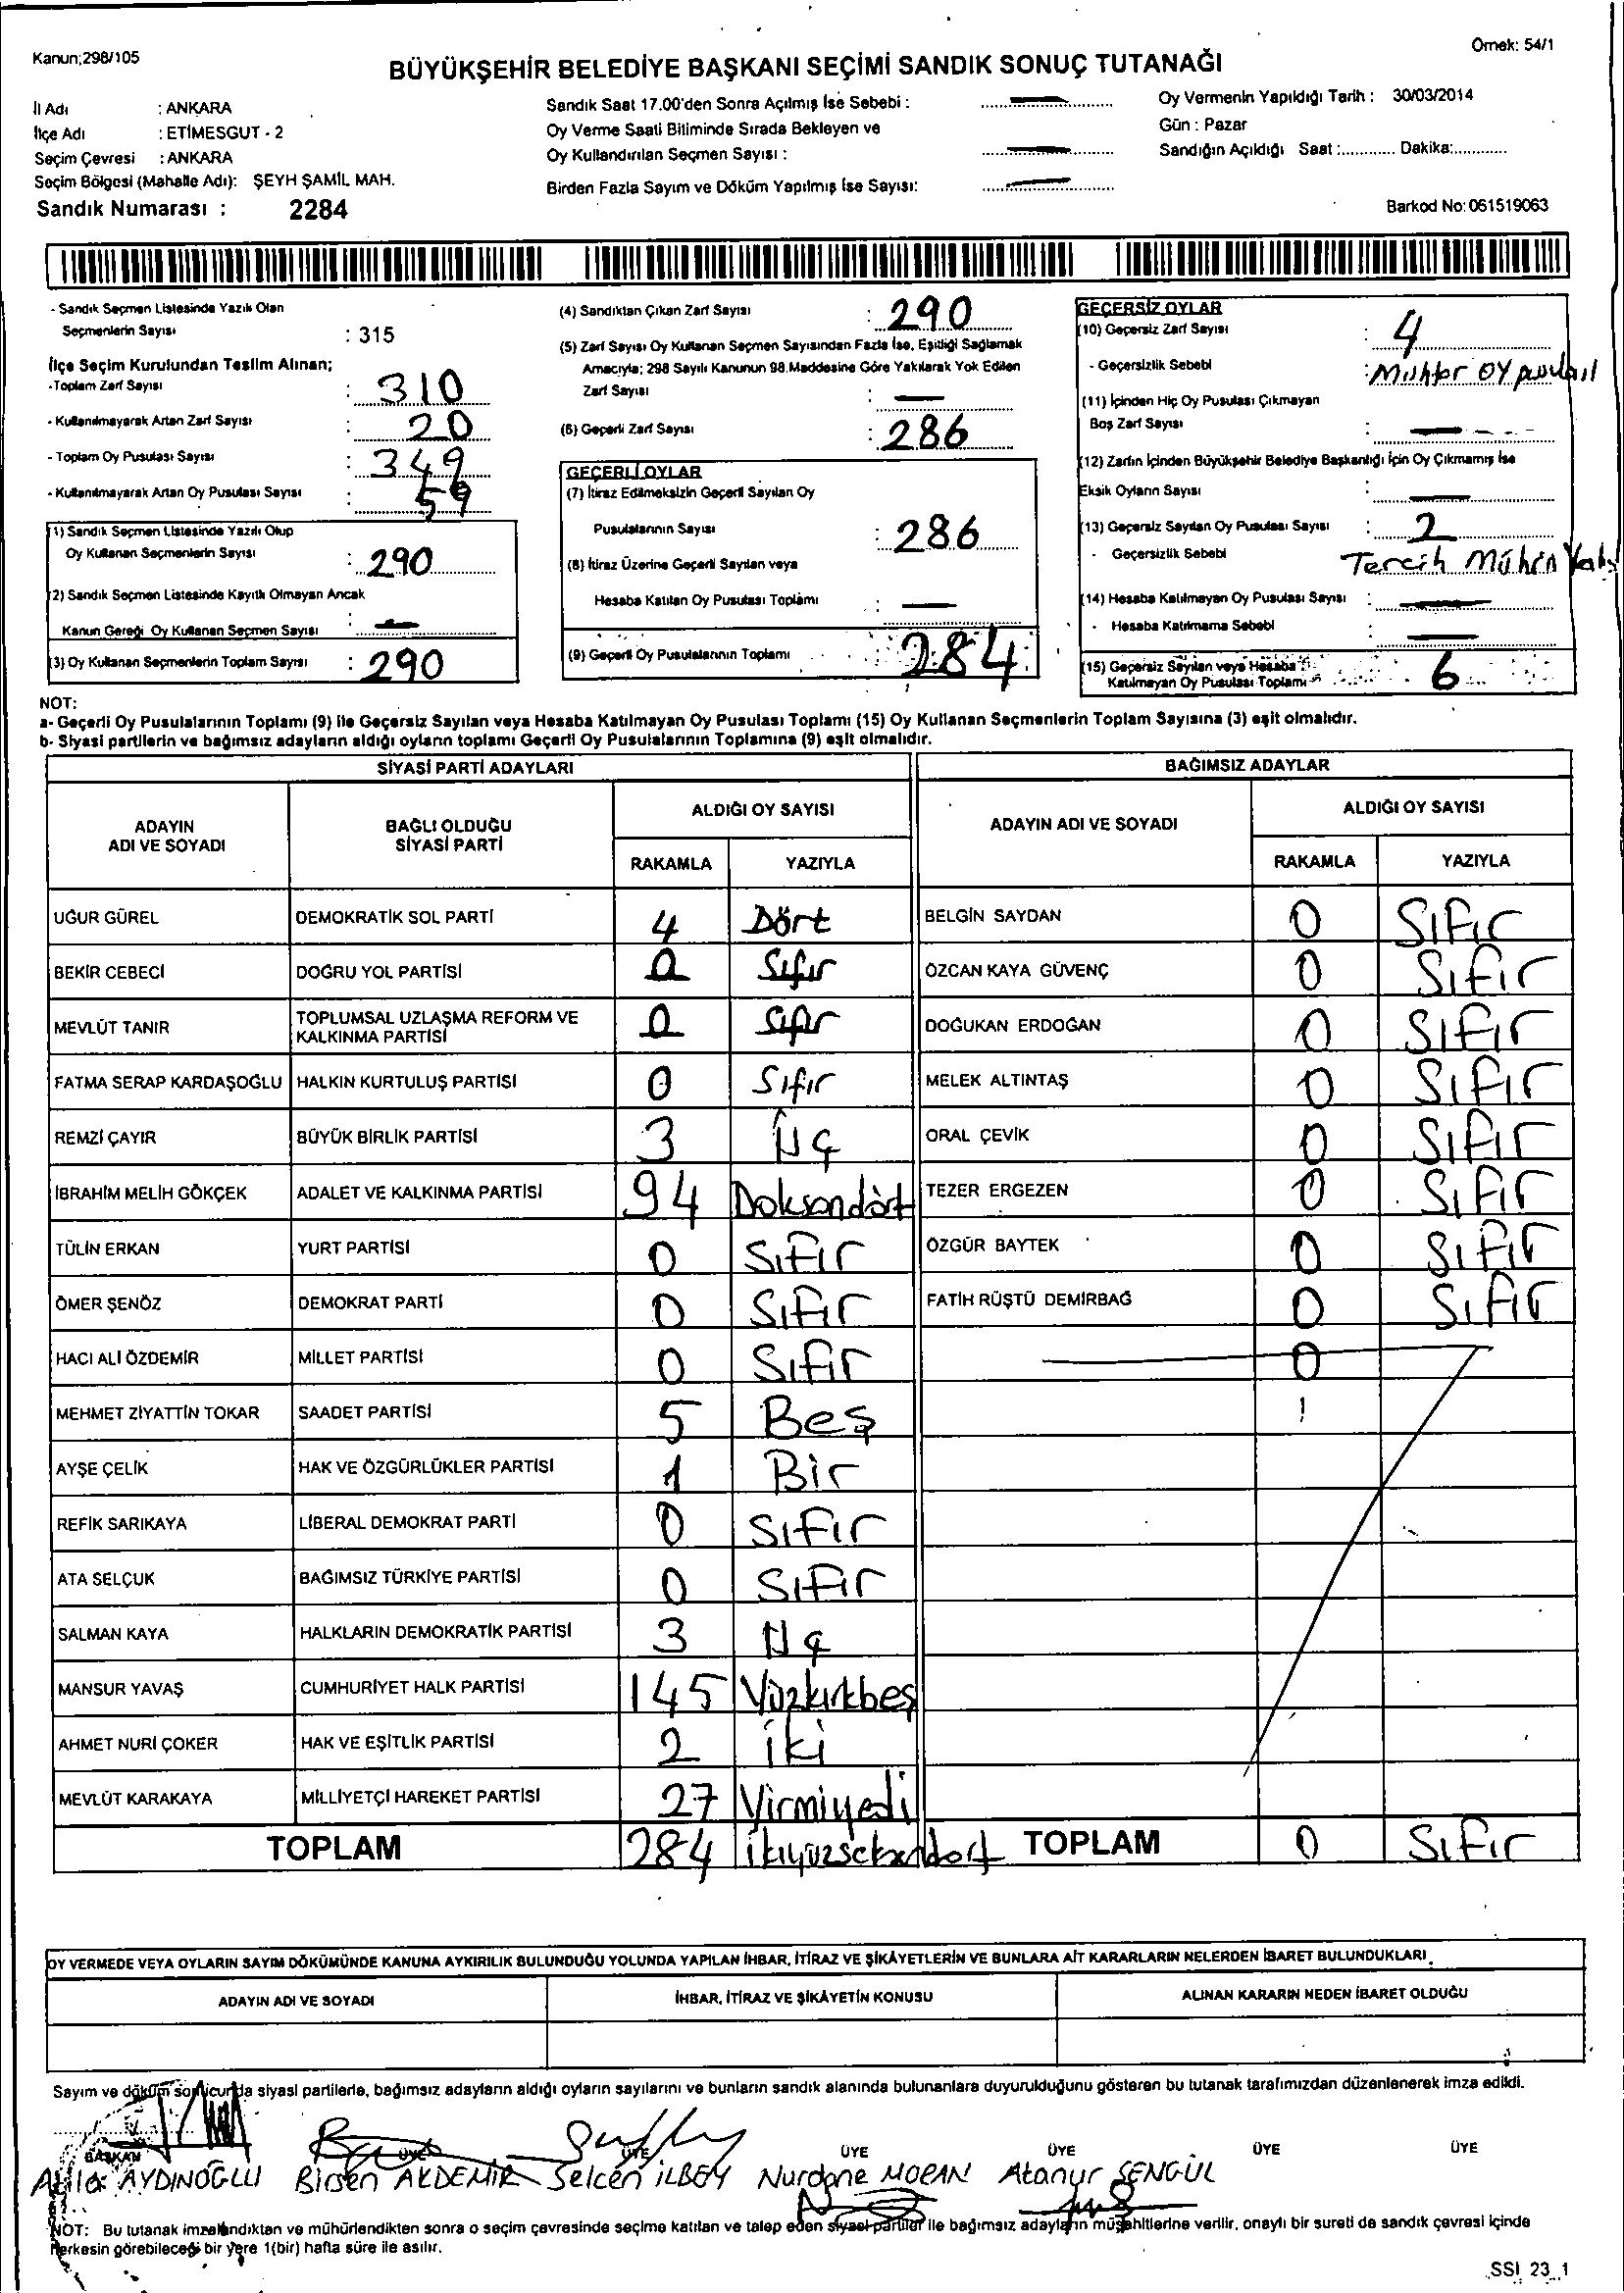 Kanun;298/105
Örnek: 54/1
BÜYÜKŞEHİR BELEDİYE BAŞKANI SEÇİMİ SANDIK SONUÇ TUTANAĞI
İl Adı : ANKARA
İlçe Adı : ETİMESGUT - 2
Seçim Çevresi : ANKARA
Seçim Bölgesi (Mahalle Adı): ŞEYH ŞAMİL MAH.
Sandık Numarası : 2284
Sandık Saat 17.00'den Sonra Açılmış İse Sebebi :
Oy Verme Saati Bitiminde Sırada Bekleyen ve
Oy Kullandırılan Seçmen Sayısı :
Birden Fazla Sayım ve Döküm Yapılmış İse Sayısı:
Oy Vermenin Yapıldığı Tarih : 30/03/2014
Gün : Pazar
Sandığın Açıldığı Saat :............ Dakika:............
Barkod No: 061519063
- Sandık Seçmen Listesinde Yazılı Olan
Seçmenlerin Sayısı : 315
İlçe Seçim Kurulundan Teslim Alınan;
-Toplam Zarf Sayısı : 310
- Kullanılmayarak Artan Zarf Sayısı : 20
- Toplam Oy Pusulası Sayısı : 349
- Kullanılmayarak Artan Oy Pusulası Sayısı : 59
(1) Sandık Seçmen Listesinde Yazılı Olup
Oy Kullanan Seçmenlerin Sayısı : 290
(2) Sandık Seçmen Listesinde Kayıtlı Olmayan Ancak
Kanun Gereği Oy Kullanan Seçmen Sayısı : —
(3) Oy Kullanan Seçmenlerin Toplam Sayısı : 290
(4) Sandıktan Çıkan Zarf Sayısı : 290
(5) Zarf Sayısı Oy Kullanan Seçmen Sayısından Fazla İse, Eşitliği Sağlamak
Amacıyla; 298 Sayılı Kanunun 98.Maddesine Göre Yakılarak Yok Edilen
Zarf Sayısı : —
(6) Geçerli Zarf Sayısı : 286
GEÇERLİ OYLAR
(7) İtiraz Edilmeksizin Geçerli Sayılan Oy
Pusulalarının Sayısı : 286
(8) İtiraz Üzerine Geçerli Sayılan veya
Hesaba Katılan Oy Pusulası Toplamı : —
(9) Geçerli Oy Pusulalarının Toplamı : 284
GEÇERSİZ OYLAR
(10) Geçersiz Zarf Sayısı : 4
- Geçersizlik Sebebi : Muhtar oy
(11) İçinden Hiç Oy Pusulası Çıkmayan
Boş Zarf Sayısı : —
(12) Zarfın İçinden Büyükşehir Belediye Başkanlığı İçin Oy Çıkmamış İse
Eksik Oyların Sayısı : —
(13) Geçersiz Sayılan Oy Pusulası Sayısı : 2
- Geçersizlik Sebebi Tercih Mührü
(14) Hesaba Katılmayan Oy Pusulası Sayısı : —
- Hesaba Katılmama Sebebi : —
(15) Geçersiz Sayılan veya Hesaba
Katılmayan Oy Pusulası Toplamı 6
NOT:
a- Geçerli Oy Pusulalarının Toplamı (9) ile Geçersiz Sayılan veya Hesaba Katılmayan Oy Pusulası Toplamı (15) Oy Kullanan Seçmenlerin Toplam Sayısına (3) eşit olmalıdır.
b- Siyasi partilerin ve bağımsız adayların aldığı oyların toplamı Geçerli Oy Pusulalarının Toplamına (9) eşit olmalıdır.
SİYASİ PARTİ ADAYLARI BAĞIMSIZ ADAYLAR
ADAYIN ADI VE SOYADI BAĞLI OLDUĞU SİYASİ PARTİ ALDIĞI OY SAYISI ADAYIN ADI VE SOYADI ALDIĞI OY SAYISI
RAKAMLA YAZIYLA RAKAMLA YAZIYLA
UĞUR GÜREL DEMOKRATİK SOL PARTİ 4 Dört BELGİN SAYDAN 0 Sıfır
BEKİR CEBECİ DOĞRU YOL PARTİSİ 0 Sıfır ÖZCAN KAYA GÜVENÇ 0 Sıfır
MEVLÜT TANIR TOPLUMSAL UZLAŞMA REFORM VE KALKINMA PARTİSİ 0 Sıfır DOĞUKAN ERDOĞAN 0 Sıfır
FATMA SERAP KARDAŞOĞLU HALKIN KURTULUŞ PARTİSİ 0 Sıfır MELEK ALTINTAŞ 0 Sıfır
REMZİ ÇAYIR BÜYÜK BİRLİK PARTİSİ 3 Üç ORAL ÇEVİK 0 Sıfır
İBRAHİM MELİH GÖKÇEK ADALET VE KALKINMA PARTİSİ 94 Doksandört TEZER ERGEZEN 0 Sıfır
TÜLİN ERKAN YURT PARTİSİ 0 Sıfır ÖZGÜR BAYTEK 0 Sıfır
ÖMER ŞENÖZ DEMOKRAT PARTİ 0 Sıfır FATİH RÜŞTÜ DEMİRBAĞ 0 Sıfır
HACI ALİ ÖZDEMİR MİLLET PARTİSİ 0 Sıfır 0
MEHMET ZİYATTİN TOKAR SAADET PARTİSİ 5 Beş
AYŞE ÇELİK HAK VE ÖZGÜRLÜKLER PARTİSİ 1 Bir
REFİK SARIKAYA LİBERAL DEMOKRAT PARTİ 0 Sıfır
ATA SELÇUK BAĞIMSIZ TÜRKİYE PARTİSİ 0 Sıfır
SALMAN KAYA HALKLARIN DEMOKRATİK PARTİSİ 3 Üç
MANSUR YAVAŞ CUMHURİYET HALK PARTİSİ 145 Yüzkırkbeş
AHMET NURİ ÇOKER HAK VE EŞİTLİK PARTİSİ 2 iki
MEVLÜT KARAKAYA MİLLİYETÇİ HAREKET PARTİSİ 27 Yirmiyedi
TOPLAM 284 ikiyüzseksendört TOPLAM 0 Sıfır
OY VERMEDE VEYA OYLARIN SAYIM DÖKÜMÜNDE KANUNA AYKIRILIK BULUNDUĞU YOLUNDA YAPILAN İHBAR, İTİRAZ VE ŞİKÂYETLERİN VE BUNLARA AİT KARARLARIN NELERDEN İBARET BULUNDUKLARI
ADAYIN ADI VE SOYADI İHBAR, İTİRAZ VE ŞİKÂYETİN KONUSU ALINAN KARARIN NEDEN İBARET OLDUĞU
Sayım ve döküm sonucunda siyasi partilerle, bağımsız adayların aldığı oyların sayılarını ve bunların sandık alanında bulunanlara duyurulduğunu gösteren bu tutanak tarafımızdan düzenlenerek imza edildi.
BAŞKAN ÜYE ÜYE ÜYE ÜYE ÜYE ÜYE
Atila AYDINOĞLU Birsen AKDEMİR Selcen İLBEY Nurdane MORAN Atanur ŞENGÜL
NOT: Bu tutanak imzalandıktan ve mühürlendikten sonra o seçim çevresinde seçime katılan ve talep eden siyasi partiler ile bağımsız adayların müşahitlerine verilir, onaylı bir sureti de sandık çevresi içinde
herkesin görebileceği bir yere 1(bir) hafta süre ile asılır.
SSI_23_1